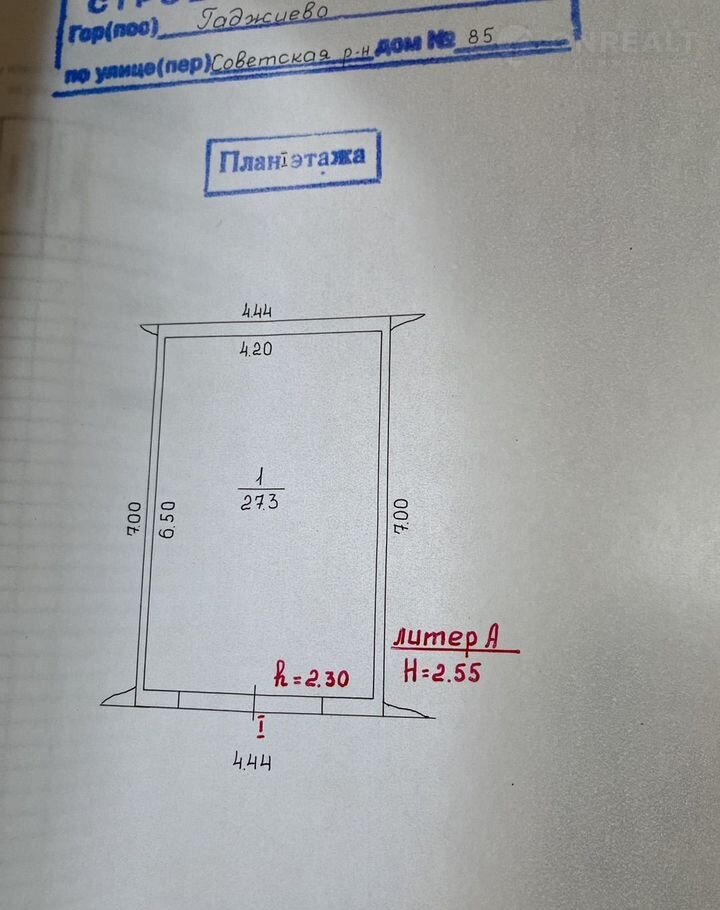 Гор(пос) Гаджиево
по улице(пер) Советская р-н дом № 85
План I этажа
4.44
4.20
1
27.3
7.00
6.50
7.00
литер А
h=2.30
H=2.55
I
4.44